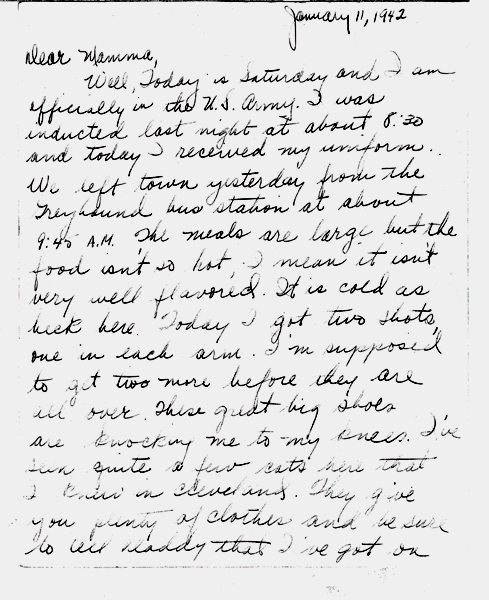 January 11, 1942
Dear Mamma,
Well, Today is Saturday and I am
officially in the U.S. Army. I was
inducted last night at about 8:30
and today I received my uniform.
We left town yesterday from the
Greyhound bus station at about
9:45 A.M. The meals are large but the
food isn't so hot, I mean it isn't
very well flavored. It is cold as
heck here. Today I got two shots,
one in each arm. I'm supposed
to get two more before they are
all over. These great big shoes
are knocking me to my knees. I've
seen quite a few cats here that
I knew in Cleveland. They give
you plenty of clothes and be sure
to tell Daddy that I've got on